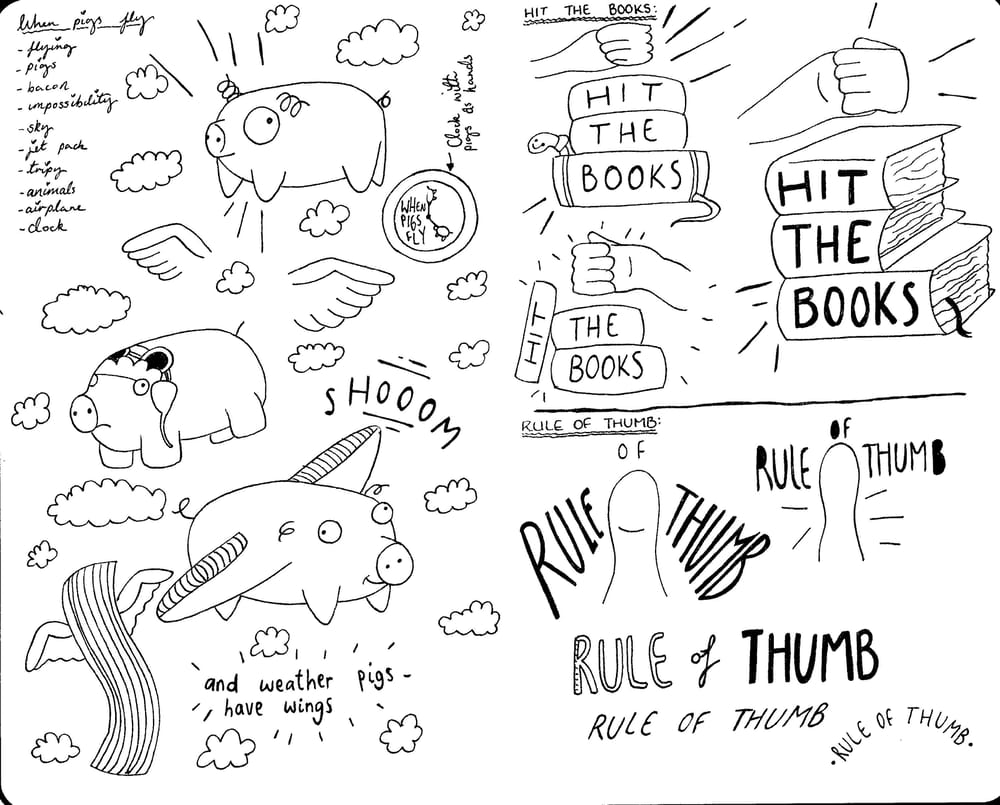 When pigs fly
- flying
- pigs
- bacon
- impossibility
- sky
- jet pack
- tripy
- animals
- airplane
- clock
Clock with
pigs as hands
WHEN
PIGS
FLY
SHOOOM
and weather pigs -
have wings
HIT THE BOOKS:
HIT
THE
BOOKS
HIT
THE
BOOKS
HIT
THE
BOOKS
RULE OF THUMB:
OF
RULE THUMB
OF
RULE THUMB
RULE of THUMB
RULE OF THUMB
•RULE OF THUMB•